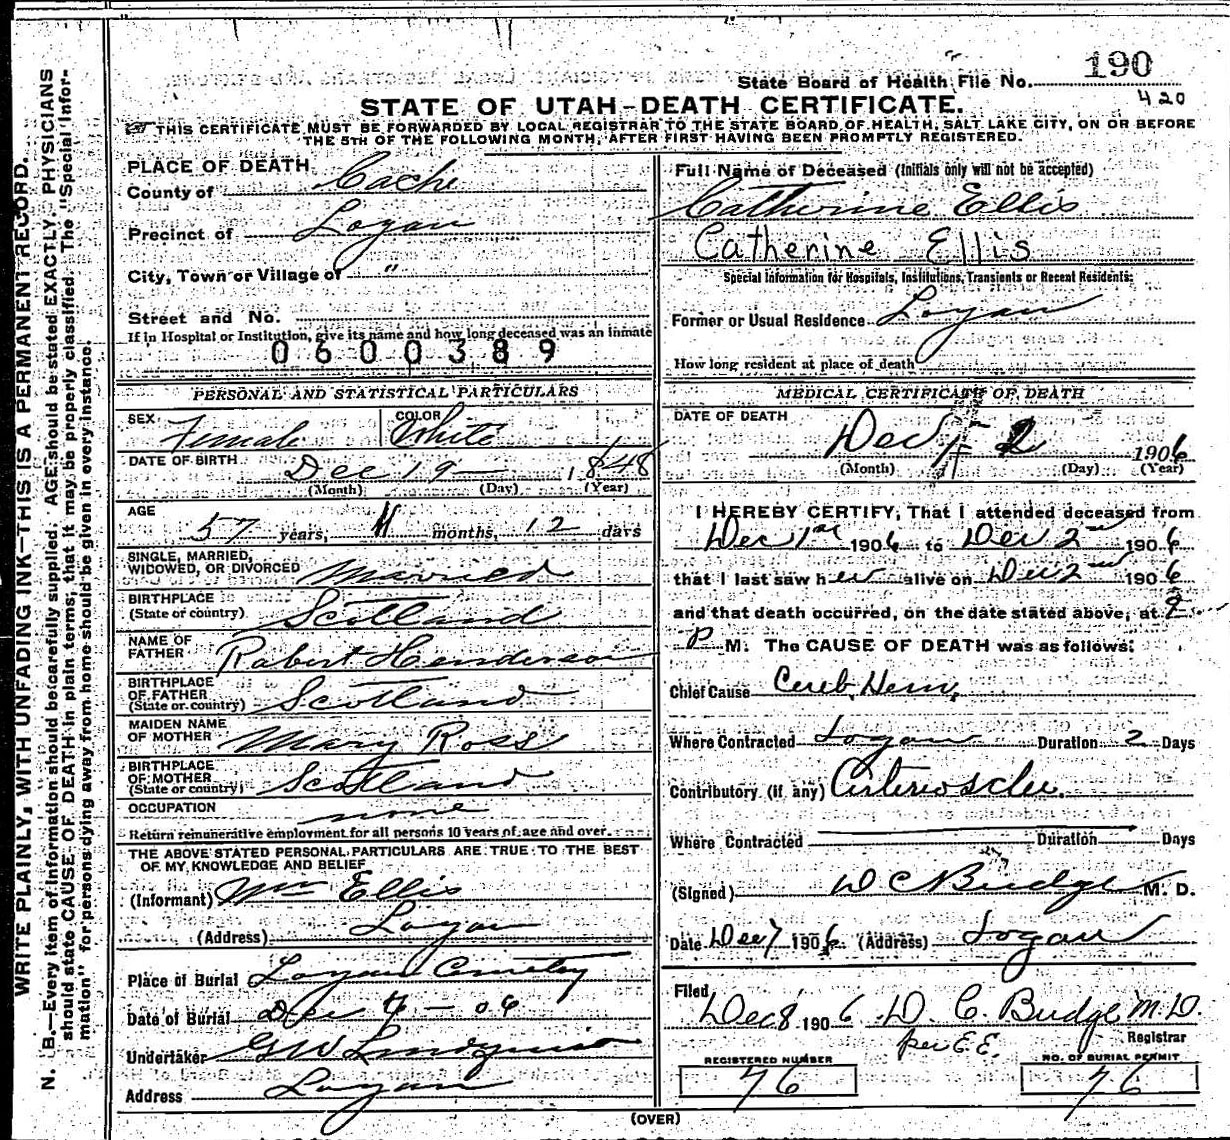 190
State Board of Health File No.
420
STATE OF UTAH-DEATH CERTIFICATE.
THIS CERTIFICATE MUST BE FORWARDED BY LOCAL REGISTRAR TO THE STATE BOARD OF HEALTH, SALT LAKE CITY, ON OR BEFORE
THE 5TH OF THE FOLLOWING MONTH, AFTER FIRST HAVING BEEN PROMPTLY REGISTERED.
WRITE PLAINLY, WITH UNFADING INK—THIS IS A PERMANENT RECORD.
N. B.—Every item of information should be carefully supplied. AGE should be stated EXACTLY. PHYSICIANS
should state CAUSE OF DEATH in plain terms, that it may be properly classified. The "Special Infor-
mation" for persons dying away from home should be given in every instance.
PLACE OF DEATH
County of Cache
Precinct of Logan
City, Town or Village of "
Street and No.
If in Hospital or Institution, give its name and how long deceased was an inmate
0600389
PERSONAL AND STATISTICAL PARTICULARS
SEX Female COLOR White
DATE OF BIRTH Dec 19 1848
(Month) (Day) (Year)
AGE 57 years, 11 months, 12 days
SINGLE, MARRIED,
WIDOWED, OR DIVORCED Married
BIRTHPLACE
(State or country) Scotland
NAME OF
FATHER Robert Henderson
BIRTHPLACE
OF FATHER
(State or country) Scotland
MAIDEN NAME
OF MOTHER Mary Ross
BIRTHPLACE
OF MOTHER
(State or country) Scotland
OCCUPATION none
Return remunerative employment for all persons 10 years of age and over.
THE ABOVE STATED PERSONAL PARTICULARS ARE TRUE TO THE BEST
OF MY KNOWLEDGE AND BELIEF
(Informant) Ellis
(Address) Logan
Place of Burial Logan Cemetery
Date of Burial Dec 4 - 06
Undertaker G W Lindquist
Address Logan
Full Name of Deceased (Initials only will not be accepted)
Catherine Ellis
Catherine Ellis
Special Information for Hospitals, Institutions, Transients or Recent Residents:
Former or Usual Residence Logan
How long resident at place of death
MEDICAL CERTIFICATE OF DEATH
DATE OF DEATH Dec 2 1906
(Month) (Day) (Year)
I HEREBY CERTIFY, That I attended deceased from
Dec 1st 1906 to Dec 2nd 1906
that I last saw her alive on Dec 2nd 1906
and that death occurred, on the date stated above, at
P M. The CAUSE OF DEATH was as follows:
Chief Cause Cereb. Hem.
Where Contracted Logan Duration 2 Days
Contributory (if any) Arterioscler.
Where Contracted Duration Days
(Signed) D C Budge M. D.
Date Dec 7 1906 (Address) Logan
Filed
Dec 8 1906 D. C. Budge M.D.
per E.E. Registrar
REGISTERED NUMBER NO. OF BURIAL PERMIT
76 76
(OVER)